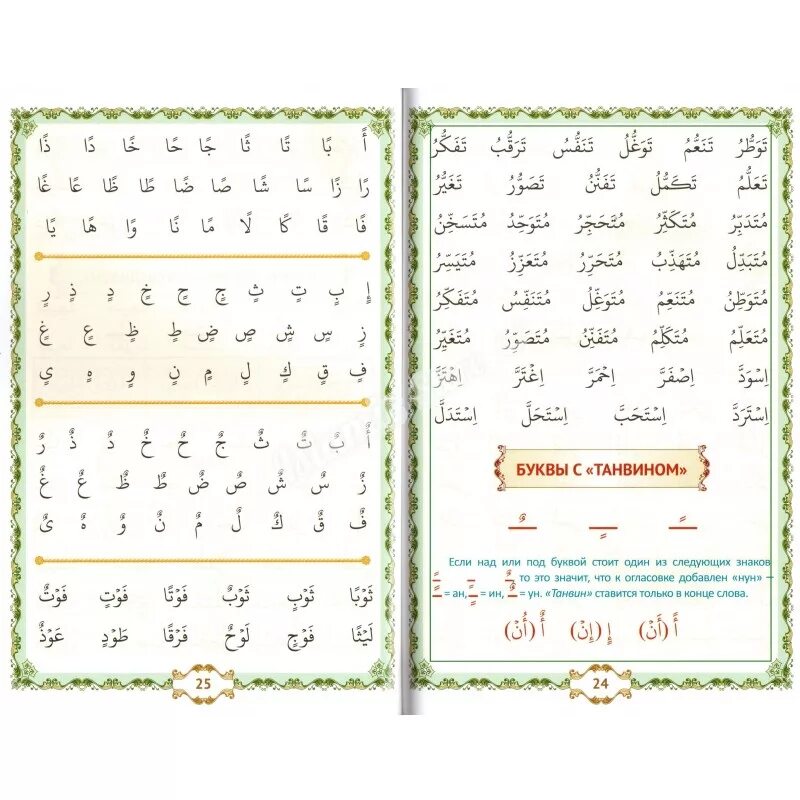 تَنَعُّمُ تَوَغُّلُ تَنَفُّسُ تَرَقُّبُ تَفَكُّرُ
تَعَلُّمُ تَكَمُّلُ تَفَنُّنُ تَصَوُّرُ تَغَيُّرُ
مُتَدَبِّرُ مُتَكَثِّرُ مُتَحَجِّرُ مُتَوَحِّدُ مُتَسَخِّنُ
مُتَبَدِّلُ مُتَهَذِّبُ مُتَحَرِّرُ مُتَعَزِّزُ مُتَيَسِّرُ
مُتَوَطِّنُ مُتَنَعِّمُ مُتَوَغِّلُ مُتَنَفِّسُ مُتَفَكِّرُ
مُتَعَلِّمُ مُتَكَلِّمُ مُتَفَنِّنُ مُتَصَوِّرُ مُتَغَيِّرُ
اِسْوَدَّ اِصْفَرَّ اِحْمَرَّ اِغْتَرَّ اِهْتَزَّ
اِسْتَرَدَّ اِسْتَحَبَّ اِسْتَحَلَّ اِسْتَدَلَّ
БУКВЫ С «ТАНВИНОМ»
ـًـ ـٍـ ـٌـ
Если над или под буквой стоит один из следующих знаков
ـًـ ـٍـ ـٌـ то это значит, что к огласовке добавлен «нун» –
ـًـ = ан, ـٍـ = ин, ـٌـ = ун. «Танвин» ставится только в конце слова.
أً (أَنْ) إٍ (إِنْ) أٌ (أُنْ)
24
أً بًا تًا ثًا جًا حًا خًا دًا ذًا
رًا زًا سًا شًا صًا ضًا طًا ظًا عًا غًا
فًا قًا كًا لًا مًا نًا وًا هًا يًا
إٍ بٍ تٍ ثٍ جٍ حٍ خٍ دٍ ذٍ رٍ
زٍ سٍ شٍ صٍ ضٍ طٍ ظٍ عٍ غٍ
فٍ قٍ كٍ لٍ مٍ نٍ وٍ هٍ يٍ
أٌ بٌ تٌ ثٌ جٌ حٌ خٌ دٌ ذٌ رٌ
زٌ سٌ شٌ صٌ ضٌ طٌ ظٌ عٌ غٌ
فٌ قٌ كٌ لٌ مٌ نٌ وٌ هٌ يٌ
ثَوْبًا ثَوْبٍ ثَوْبٌ فَوْتًا فَوْتٍ فَوْتٌ
لَيْثًا فَوْجٍ لَوْحٌ فَرْقًا طَوْدٍ عَوْذٌ
25